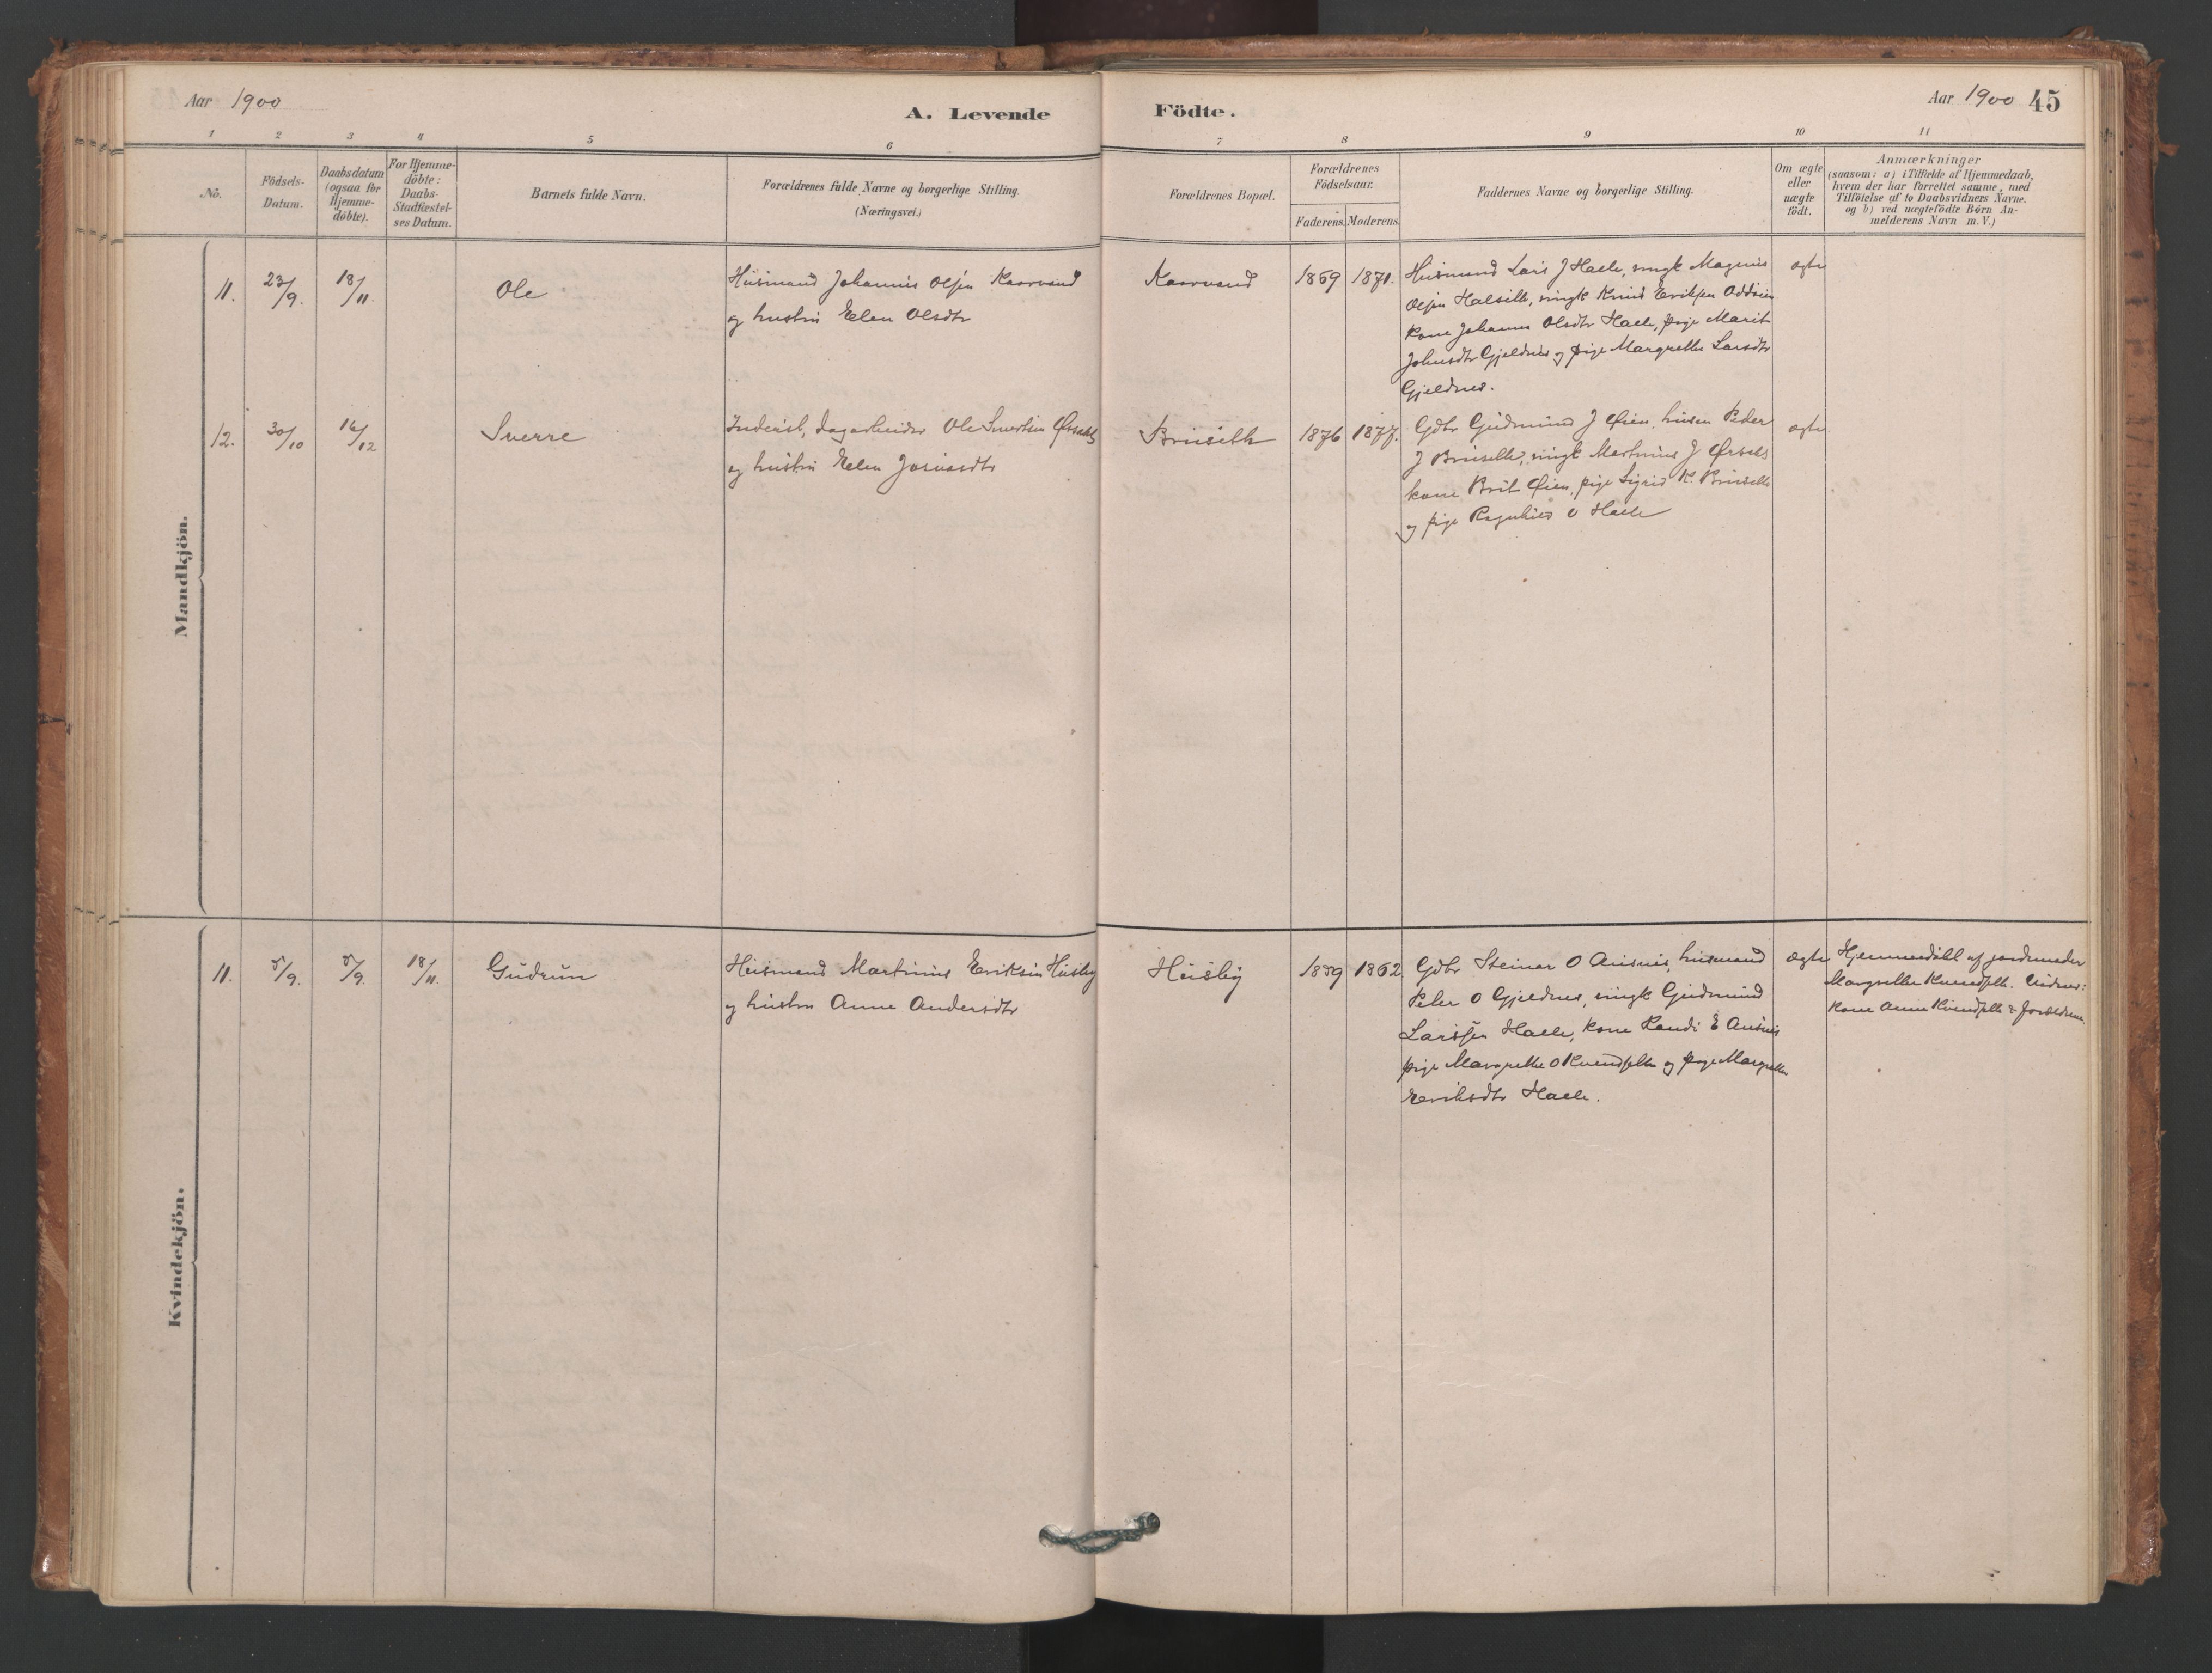 Aar 1900
A. Levende
Födte.
Aar 1900 45
1 2 3 4 5 6 7 8 9 10 11
No.
Födsels-
Datum.
Daabsdatum
(ogsaa for
Hjemme-
döbte).
For Hjemme-
döbte:
Daabs-
Stadfæstel-
ses Datum.
Barnets fulde Navn.
Forældrenes fulde Navne og borgerlige Stilling.
(Næringsvei.)
Forældrenes Bopæl.
Forældrenes
Födselsaar.
Faderens. Moderens.
Faddernes Navne og borgerlige Stilling.
Om ægte
eller
uægte
födt.
Anmærkninger
(saasom: a) i Tilfælde af Hjemmedaab,
hvem der har forrettet samme, med
Tilföielse af to Daabsvidners Navne.
og b) ved uægtefödte Börn An-
melderens Navn m. V.)
Mandkjön.
11. 23/9. 18/11. Ole
Husmand Johannes Olsen Kaarvand
og hustru Elen Olsdtr
Kaarvand 1869 1871.
Husmand Lars J Halle, ungk Magnus
Olsen Halseth, ungk Knud Eriksen Oddvin
kone Johanna Olsdtr Halle, pige Marit
Johnsdtr Gjeldnes og pige Margrethe Larsdtr
Gjeldnes.
ægte
12. 30/10 16/12 Sverre
Inderst, dagarbeider Ole Sivertsen Ørsahl
og hustru Elen Jonasdtr
Bruseth 1876 1877.
Gdbr Gudmund J Øien, husm Peder
J Bruseth, ungk Martinus J Ørsahl
kone Brit Øien, pige Sigrid K. Bruseth
og pige Ragnhild O Halle
ægte
Kvindekjön.
11. 5/9. 5/9. 18/11. Gudrun
Husmand Martinus Eriksen Husby
og hustru Anne Andersdtr
Husby 1859 1862.
Gdbr Steinar O Ausnes, husmand
Peder O Gjeldnes, ungk Gudmund
Larssen Halle, kone Randi E Ausnes
pige Margrethe O Kvendseth og pige Margrethe
Eriksdtr Halle.
ægte
Hjemmedöbt af jordmoder
Margrethe Kvendseth. Vidner:
kone Anne Kvendseth & forældrene.